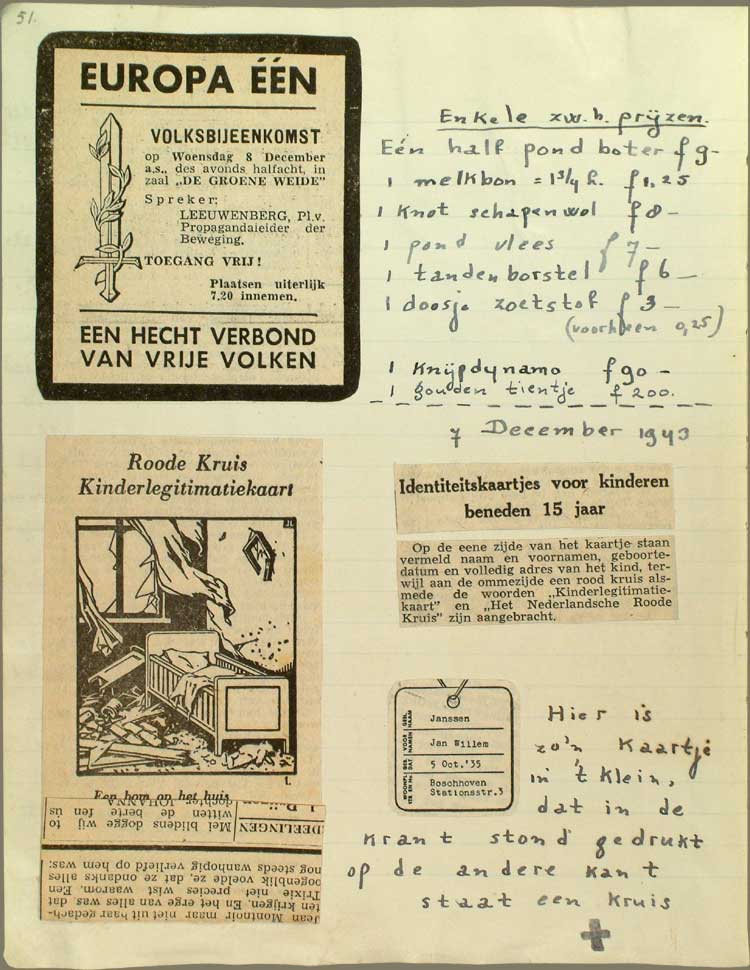 51.
EUROPA ÉÉN
VOLKSBIJEENKOMST
op Woensdag 8 December
a.s., des avonds halfacht, in
zaal „DE GROENE WEIDE"
Spreker:
LEEUWENBERG, Pl.v.
Propagandaleider der
Beweging.
TOEGANG VRIJ!
Plaatsen uiterlijk
7.20 innemen.
EEN HECHT VERBOND
VAN VRIJE VOLKEN
Enkele zw.h. prijzen.
Eén half pond boter f 9-
1 melkbon = 1¾ l. f 1,25
1 Knot schapenwol f 8 -
1 pond vlees f 7 -
1 tandenborstel f 6 -
1 doosje zoetstof f 3 -
(voorheen 0,25)
1 Knijpdynamo f 90 -
1 gouden tientje f 200.
7 December 1943
Roode Kruis
Kinderlegitimatiekaart
1.
Een bom op het huis
DEELINGEN
Mei blidens dogge wij to
witten de berte fen ús
dochter JOHANNA
Jean Montnoir maar niet uit haar gedach-
ten krijgen. En het erge van alles was, dat
Trixie niet precies wist waarom. Een
oogenblik voelde ze, dat ze ondanks alles
nog steeds wanhopig verliefd op hem was:
Identiteitskaartjes voor kinderen
beneden 15 jaar
Op de eene zijde van het kaartje staan
vermeld naam en voornamen, geboorte-
datum en volledig adres van het kind, ter-
wijl aan de ommezijde een rood kruis als-
mede de woorden „Kinderlegitimatie-
kaart" en „Het Nederlandsche Roode
Kruis" zijn aangebracht.
Janssen
Jan Willem
5 Oct.'35
Boschhoven
Stationsstr.3
Hier is
zo'n Kaartje
in 't klein,
dat in de
krant stond gedrukt
op de andere kant
staat een kruis